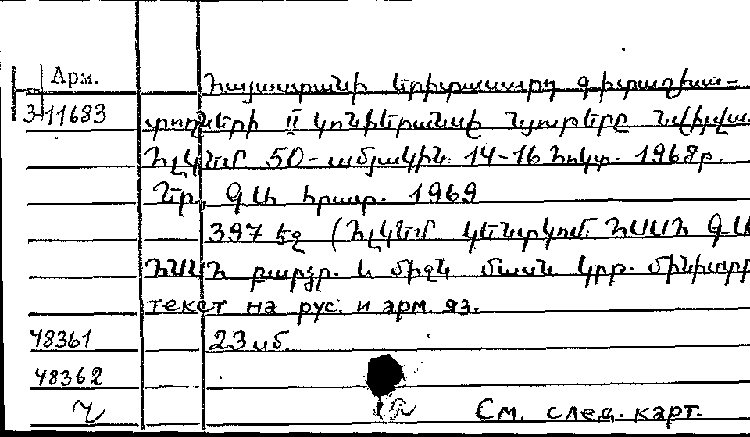 Арм.
Հայաստանի երիտասարդ գիտաշխա-
3-11683
տողների II կոնֆերանսի նյութերը նվիրվա
ՀԼԿԵՄ 50-ամյակին. 14-16 հոկտ. 1968թ.
Եր., ԳԱ հրատ. 1969
397 էջ (ՀԼԿԵՄ կենտկոմ. ՀՍՍՀ ԳԱ
ՀՍՍՀ բարձր. և միջն. մասն. կրթ. մինիստր
текст на рус. и арм. яз.
48361
23 սմ.
48362
См. след. карт.